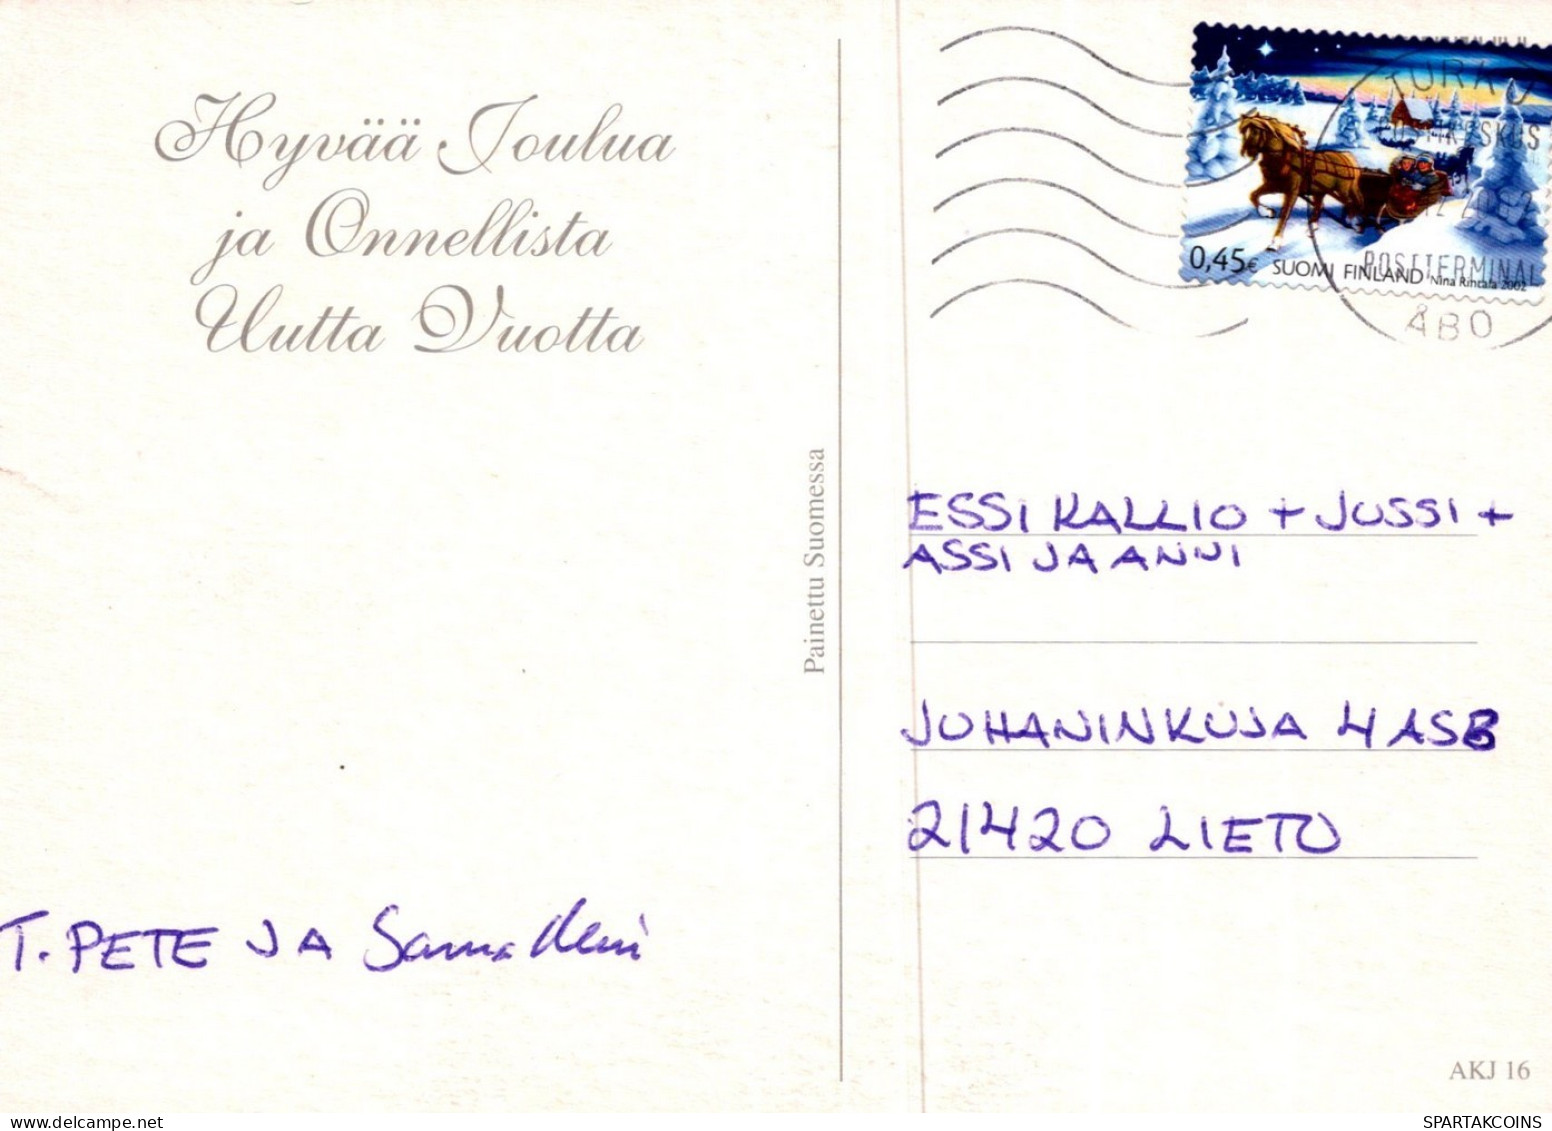 Hyvää Joulua
ja Onnellista
Uutta Vuotta
T. PETE JA
Painettu Suomessa
TURKU
POSTIKESKUS
POSTTERMINAL
ÅBO
0,45€ SUOMI FINLAND Nina Rintala 2002
ESSI KALLIO + JUSSI +
ASSI JA ANNI
JUHANINKUJA 4 AS6
21420 LIETO
AKJ 16
SPARTAKCOINS